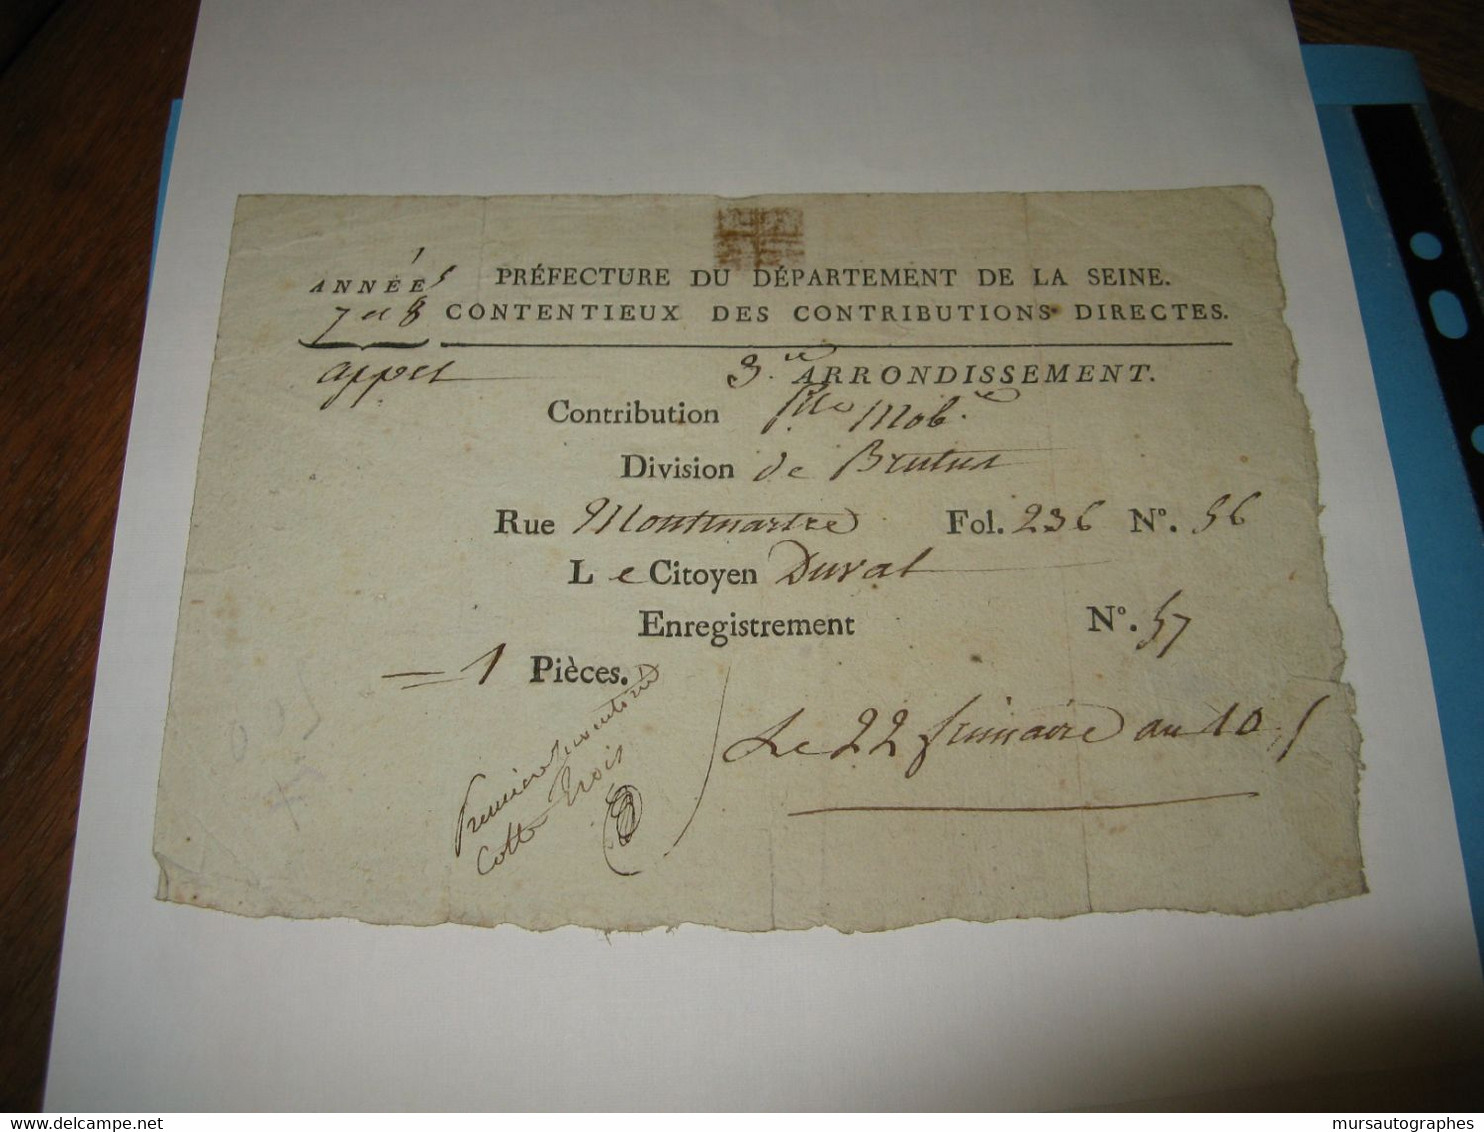 ANNÉEs PRÉFECTURE DU DÉPARTEMENT DE LA SEINE.
7 et 8 CONTENTIEUX DES CONTRIBUTIONS DIRECTES.
appel 3.e ARRONDISSEMENT.
Contribution Mob.re
Division de Brutus
Rue Montmartre Fol. 236 N°. 56
Le Citoyen Duval
Enregistrement N°. 57
= 1 Pièces.
Le 22 frimaire an 10
Premiere
Cotte trois
delcampe.net
mursautographes